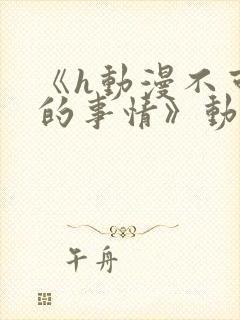 《h動漫不可
的事情》動
午舟